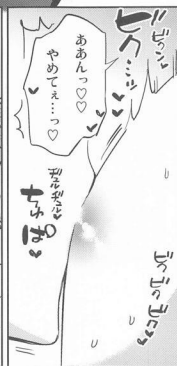 ビクン♡
ビク…ッ
ああんっ♡♡
やめてぇ…っ♡
ヂュルヂュル♥
ちゅぱ♥
ビクビクビクッ♡